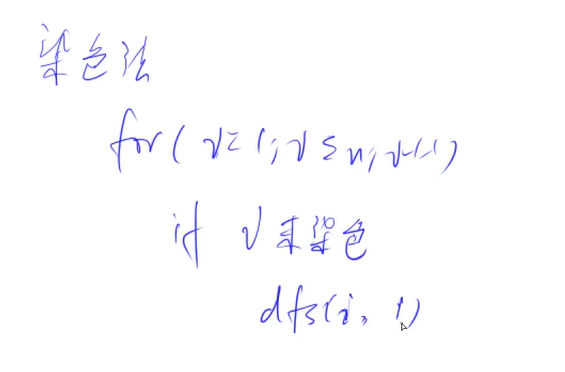 染色法
for(i=1;i≤n;i++)
if i未染色
dfs(i,1)